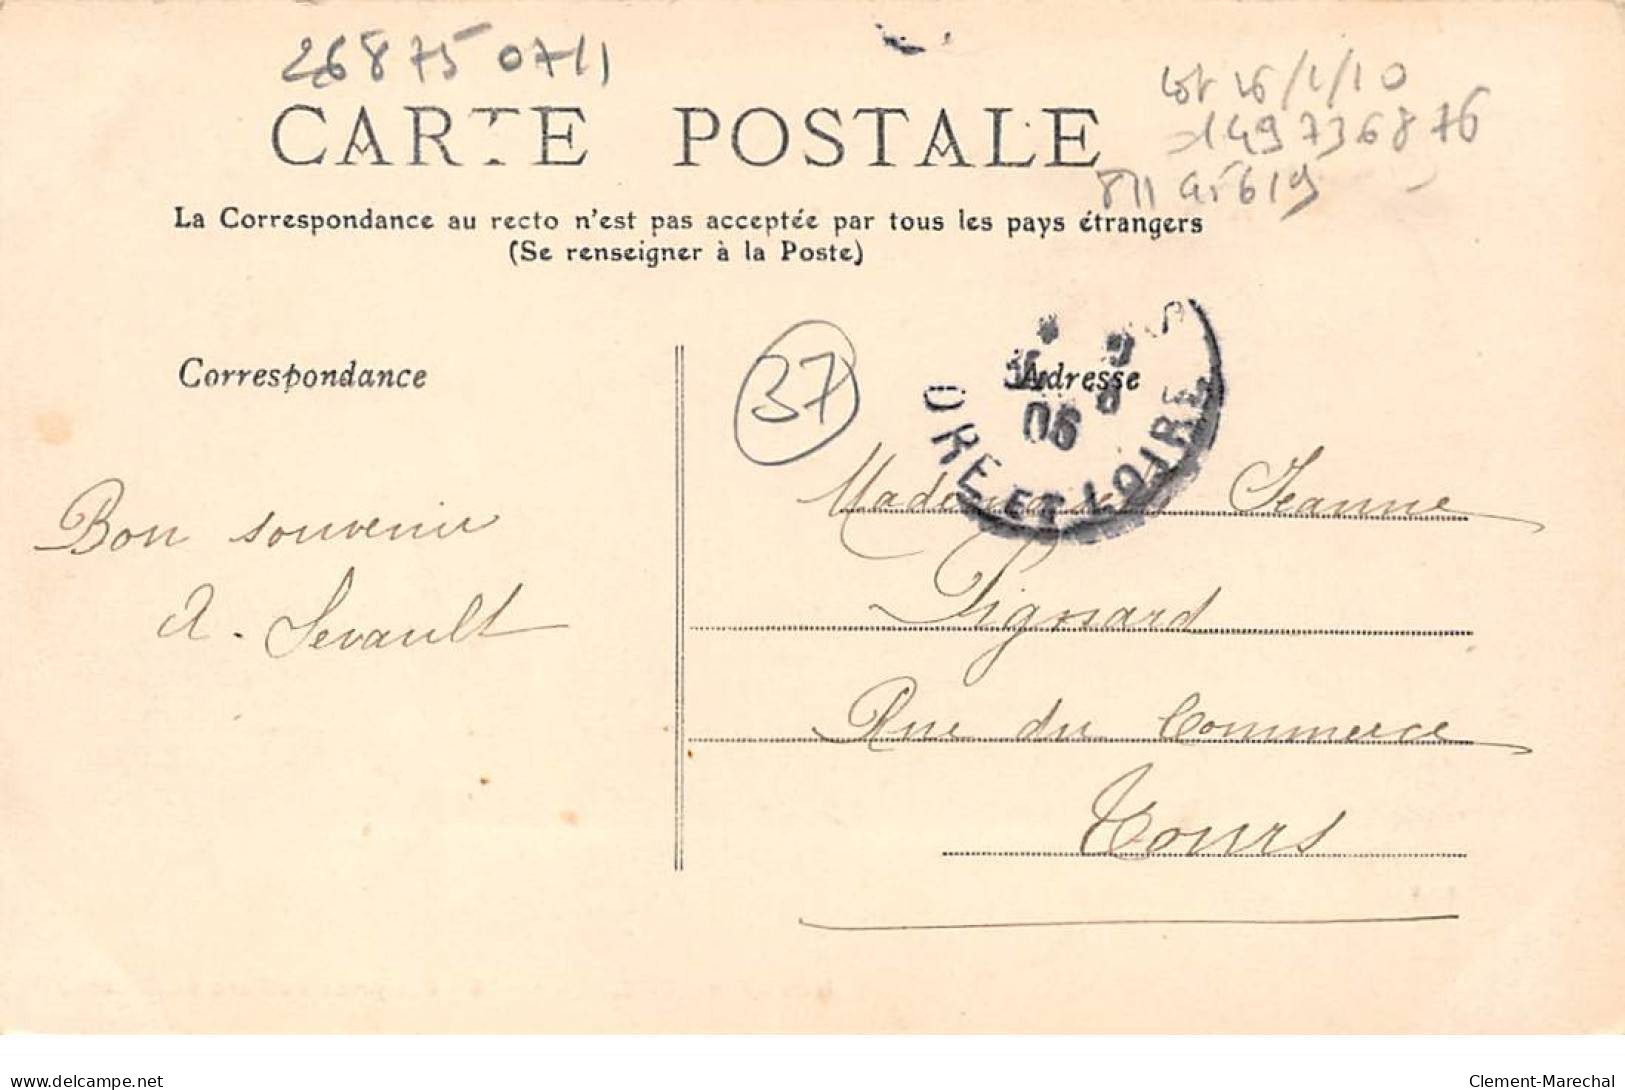 26875 0711
lot 16/1/10
149736876
CARTE POSTALE
La Correspondance au recto n'est pas acceptée par tous les pays étrangers
(Se renseigner à la Poste)
Correspondance
37
Adresse
06
DRE ET LOIRE
Bon souvenir
A. Sevault
Jeanne
Pignard
Rue du Commerce
Tours
www.delcampe.net
Clement-Marechal